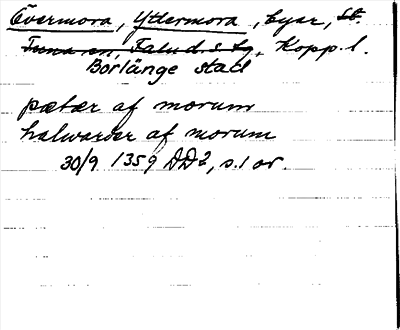 Övermora, Yttermora, byar, St.
Tuna sn, Falu d.s. fg, Kopp. l.
Borlänge stad
pætær af morum
halwarder af morum
30/9 1359 DD2, s. 1 or.